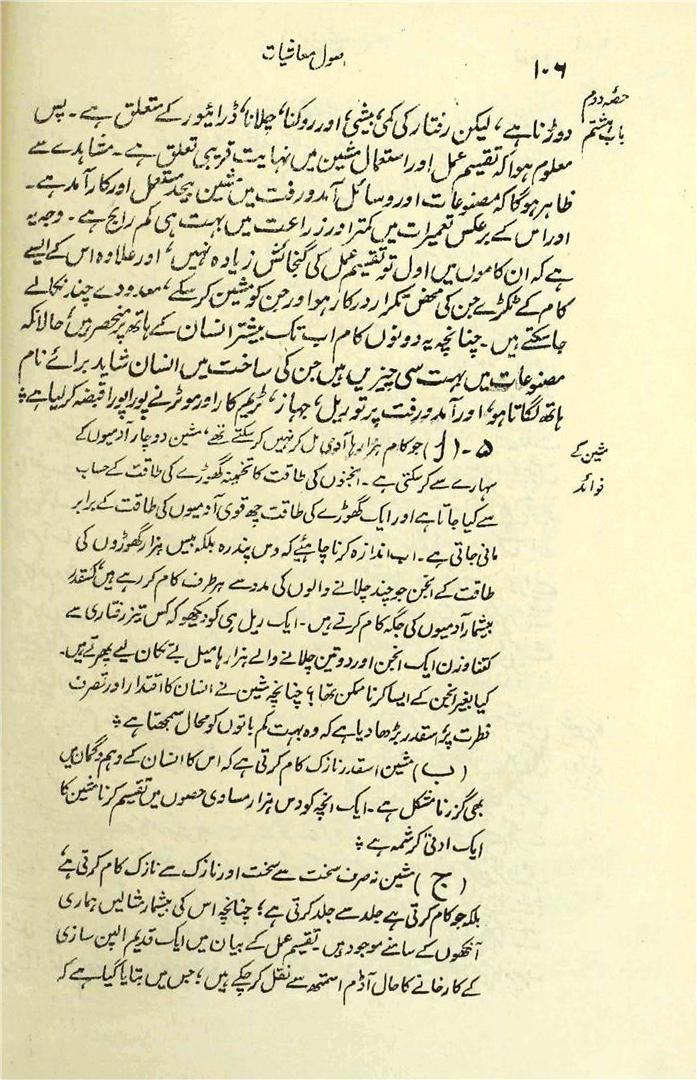 ۱۰۶
اصول معاشیات
حصّہ دوم
باب ہشتم
دوڑنا ہے، لیکن رفتار کی کمی بیشی، اور روکنا، چلانا، ڈرائیور کے متعلق ہے۔ پس
معلوم ہوا کہ تقسیم عمل اور استعمال مشین میں نہایت قریبی تعلق ہے۔ مشاہدے سے
ظاہر ہوگا کہ مصنوعات اور وسائل آمد و رفت میں مشین بیحد مستعمل اور کار آمد ہے۔
اور اس کے برعکس تعمیرات میں کمتر اور زراعت میں بہت ہی کم رایج ہے۔ وجہ یہ
ہے کہ ان کاموں میں اول تو تقسیم عمل کی گنجائش زیادہ نہیں، اور علاوہ اس کے ایسے
کام کے ٹکڑے جن کی محض تکرار درکار ہو اور جن کو مشین کر سکے، معدودے چند نکالے
جا سکتے ہیں۔ چنانچہ یہ دونوں کام اب تک بیشتر انسان کے ہاتھ پر منحصر ہیں، حالانکہ
مصنوعات میں بہت سی چیزیں ہیں جن کی ساخت میں انسان شاید برائے نام
ہاتھ لگاتا ہو، اور آمد و رفت پر تو ریل، جہاز، ٹریم کار اور موٹر نے پورا پورا قبضہ کر لیا ہے؞
مشین کے
فوائد
۵۔ (ا) جو کام ہزار ہا آدمی مل کر نہیں کر سکتے تھے، مشین دو چار آدمیوں کے
سہارے سے کر سکتی ہے۔ انجنوں کی طاقت کا تخمینہ گھوڑے کی طاقت کے حساب
سے کیا جاتا ہے اور ایک گھوڑے کی طاقت چھ قوی آدمیوں کی طاقت کے برابر
مانی جاتی ہے۔ اب اندازہ کرنا چاہئے کہ دس پندرہ بلکہ بیس ہزار گھوڑوں کی
طاقت کے انجن جو چند چلانے والوں کی مدد سے ہر طرف کام کر رہے ہیں، کسقدر
بیشمار آدمیوں کی جگہ کام کرتے ہیں۔ ایک ریل ہی کو دیکھو کہ کس تیز رفتاری سے
کتنا وزن ایک انجن اور دو تین چلانے والے ہزارہا میل بے تکان لیے پھرتے ہیں۔
کیا بغیر انجن کے ایسا کرنا ممکن تھا؟ چنانچہ مشین نے انسان کا اقتدار اور تصرف
فطرت پر اسقدر بڑھا دیا ہے کہ وہ بہت کم باتوں کو محال سمجھتا ہے؞
(ب) مشین اسقدر نازک کام کرتی ہے کہ اس کا انسان کے وہم و گمان میں
بھی گزرنا مشکل ہے۔ ایک انچہ کو دس ہزار مساوی حصوں میں تقسیم کرنا مشین کا
ایک ادنیٰ کرشمہ ہے؞
(ج) مشین نہ صرف سخت سے سخت اور نازک سے نازک کام کرتی ہے،
بلکہ جو کام کرتی ہے جلد سے جلد کرتی ہے؛ چنانچہ اس کی بیشمار مثالیں ہماری
آنکھوں کے سامنے موجود ہیں۔ تقسیم عمل کے بیان میں ایک قدیم الپن سازی
کے کارخانے کا حال آڈم اسمتھ سے نقل کر چکے ہیں؛ جس میں بتایا گیا ہے کہ